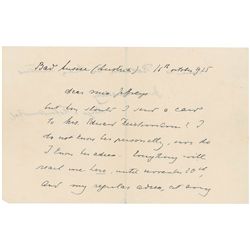 Bad Aussee (Austria) 16th October 1925
dear miss
but how should I send a card
to Mrs. Edward ? I
do not know her personally, nor do
I know her adress. Everything will
reach me here, until november 20th
and my regular adress, at any